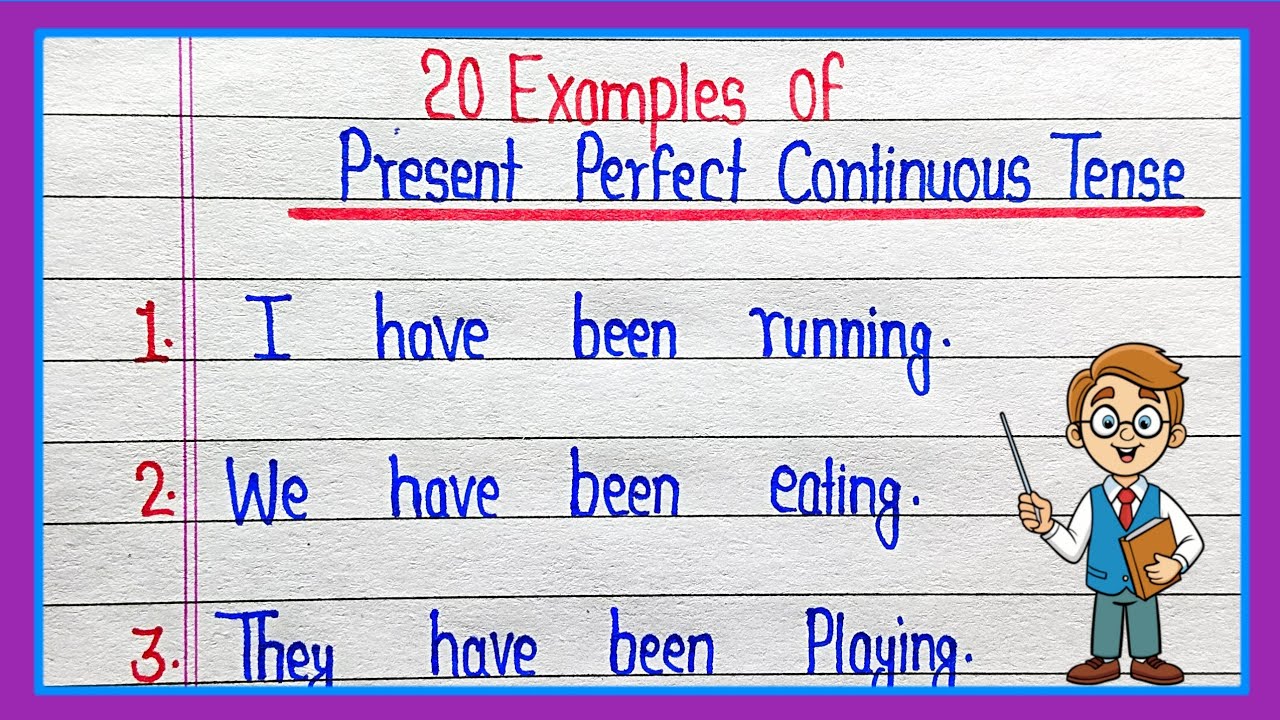 20 Examples of
Present Perfect Continuous Tense
1. I have been running.
2. We have been eating.
3. They have been Playing.